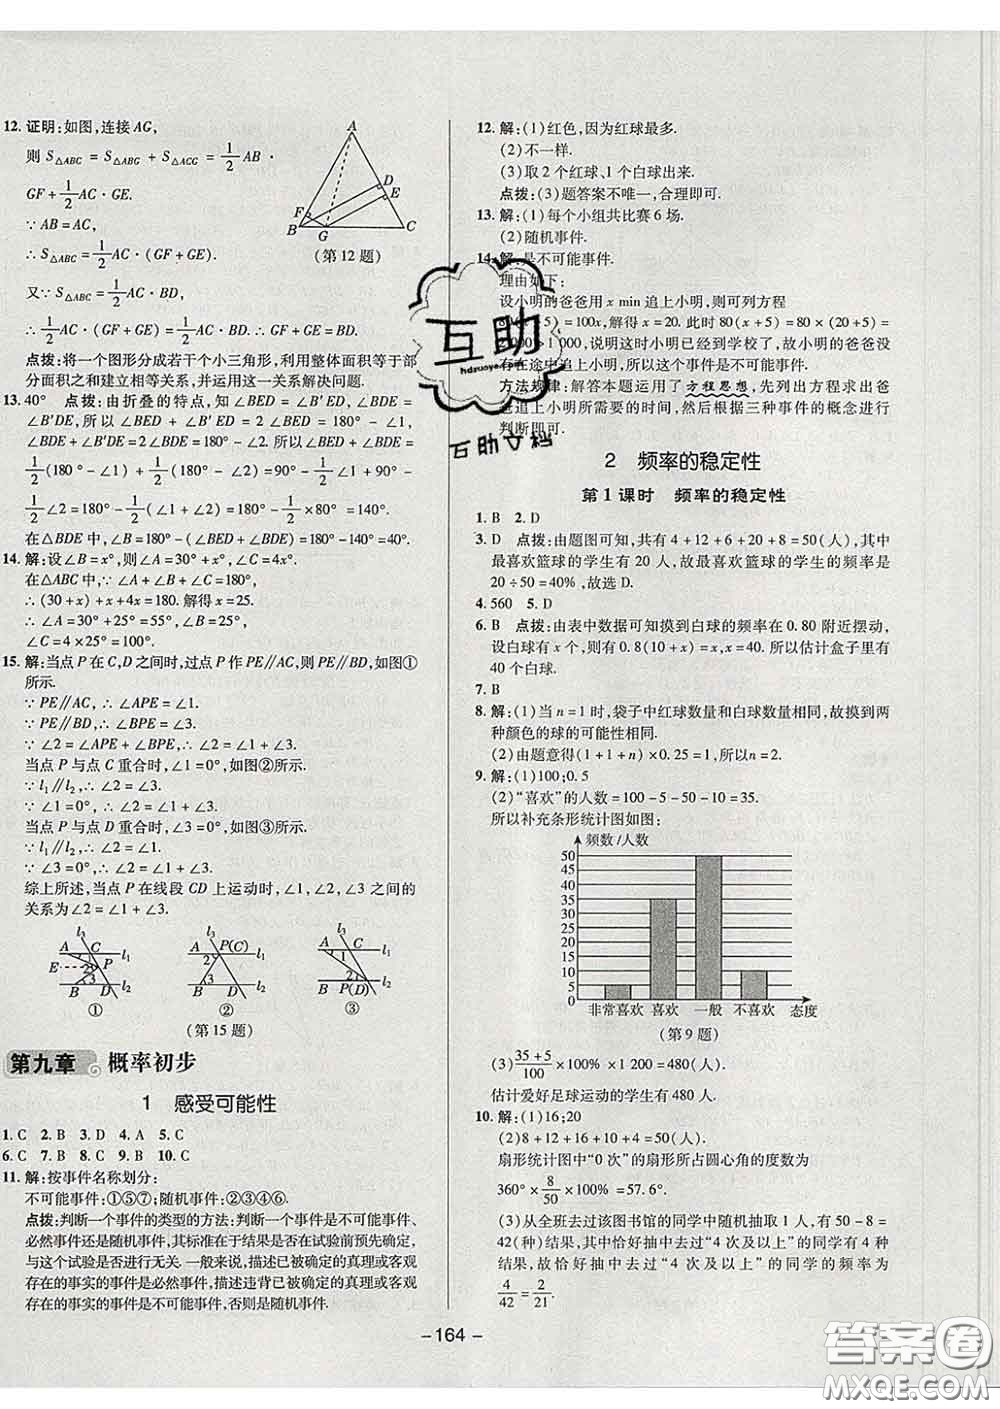 12. 证明:如图,连接 AG,
则 S△ABC = S△ABG + S△ACG = 1/2 AB ·
GF + 1/2 AC · GE.
∵ AB = AC,
∴ S△ABC = 1/2 AC · (GF + GE).
又∵ S△ABC = 1/2 AC · BD,
∴ 1/2 AC · (GF + GE) = 1/2 AC · BD. ∴ GF + GE = BD.
A
D
E
F
B
G
C
(第 12 题)
点拨:将一个图形分成若干个小三角形,利用整体面积等于部
分面积之和建立相等关系,并运用这一关系解决问题.
13. 40° 点拨:由折叠的特点,知 ∠BED = ∠B′ED, ∠BDE =
∠B′DE,所以 ∠BED + ∠B′ED = 2∠BED = 180° - ∠1,
∠BDE + ∠B′DE = 2∠BDE = 180° - ∠2. 所以∠BED + ∠BDE =
1/2(180° - ∠1) + 1/2(180° - ∠2) = 90° - 1/2∠1 + 90° -
1/2∠2 = 180° - 1/2(∠1 + ∠2) = 180° - 1/2×80° = 140°.
在△BDE 中,∠B = 180° - (∠BED + ∠BDE) = 180° - 140° = 40°.
14. 解:设∠B = x°,则∠A = 30° + x°,∠C = 4x°.
在△ABC中,∵∠A + ∠B + ∠C = 180°,
∴ (30 + x) + x + 4x = 180. 解得 x = 25.
∴ ∠A = 30° + 25° = 55°, ∠B = 25°,
∠C = 4×25° = 100°.
15. 解:当点 P 在 C,D 之间时,过点 P 作 PE∥AC,则 PE∥BD,如图①
所示.
∵ PE∥AC,∴ ∠APE = ∠1.
∵ PE∥BD,∴ ∠BPE = ∠3.
∵ ∠2 = ∠APE + ∠BPE,∴ ∠2 = ∠1 + ∠3.
当点 P 与点 C 重合时,∠1 = 0°,如图②所示.
∵ l₁∥l₂,∴ ∠2 = ∠3.
∵ ∠1 = 0°,∴ ∠2 = ∠1 + ∠3.
当点 P 与点 D 重合时,∠3 = 0°,如图③所示.
∵ l₁∥l₂,∴ ∠2 = ∠1.
∵ ∠3 = 0°,∴ ∠2 = ∠1 + ∠3.
综上所述,当点 P 在线段 CD 上运动时,∠1,∠2,∠3 之间的
关系为∠2 = ∠1 + ∠3.
l₃ A C l₁ E P 2 3 B D l₂
①
l₃ A P(C) l₁ 2 3 B D l₂
②
l₃ A C l₁ 1 2 B P(D) l₂
③
(第 15 题)
第九章 概率初步
1 感受可能性
1. C 2. B 3. D 4. A 5. C
6. C 7. B 8. B 9. B 10. C
11. 解:按事件名称划分:
不可能事件:①⑤⑦;随机事件:②③④⑥.
点拨:判断一个事件的类型的方法:判断一个事件是不可能事件、
必然事件还是随机事件,其标准在于结果是否在试验前预先确定,
与这个试验是否进行无关.一般来说,描述已被确定的真理或客观
存在的事实的事件是必然事件,描述违背已被确定的真理或客观
存在的事实的事件是不可能事件,否则是随机事件.
12. 解:(1)红色,因为红球最多.
(2)不一样.
(3)取 2 个红球、1 个白球出来.
点拨:(3)题答案不唯一,合理即可.
13. 解:(1)每个小组共比赛 6 场.
(2)随机事件.
14. 解:是不可能事件.
理由如下:
设小明的爸爸用 x min 追上小明,则可列方程
80(x + 5) = 100x,解得 x = 20. 此时 80(x + 5) = 80×(20 + 5) =
2 000 > 1 000,说明这时小明已经到学校了,故小明的爸爸没
存在途中追上小明,所以这个事件是不可能事件.
方法规律:解答本题运用了方程思想,先列出方程求出爸
爸追上小明所需要的时间,然后根据三种事件的概念进行
判断即可.
2 频率的稳定性
第 1 课时 频率的稳定性
1. B 2. D
3. D 点拨:由题图可知,共有 4 + 12 + 6 + 20 + 8 = 50(人),
最喜欢篮球的学生有 20 人,故最喜欢篮球的学生的频率是
20÷50 = 40%,故选 D.
4. 560 5. D
6. B 点拨:由表中数据可知摸到白球的频率在 0.80 附近摆动,
设白球有 x 个,则有 0.8(10 + x) = x,x = 40. 所以估计盒子里有
40 个白球.
7. B
8. 解:(1)当 n = 1 时,袋子中红球数量和白球数量相同,故摸到两
种颜色的球的可能性相同.
(2)由题意得(1 + 1 + n)×0.25 = 1,所以 n = 2.
9. 解:(1)100;0.5
(2)“喜欢”的人数 = 100 - 5 - 50 - 10 = 35.
所以补充条形统计图如图:
频数/人数
50
45
40
35
30
25
20
15
10
5
0
非常喜欢 喜欢 一般 不喜欢 态度
(第 9 题)
(3) (35 + 5)/100 ×100%×1 200 = 480(人).
估计爱好足球运动的学生有 480 人.
10. 解:(1)16;20
(2)8 + 12 + 16 + 10 + 4 = 50(人).
扇形统计图中“0 次”的扇形所占圆心角的度数为
360°×8/50×100% = 57.6°.
(3)从全班去过该图书馆的同学中随机抽取 1 人,有 50 - 8 =
42(种)结果,其中恰好抽中去过“4 次及以上”的同学有 4 种
结果,故恰好抽中去过“4 次及以上”的同学的频率为
4/42 = 2/21.
- 164 -
互助
hdzuoye.com
互助文档
答案圈
MXQE.COM